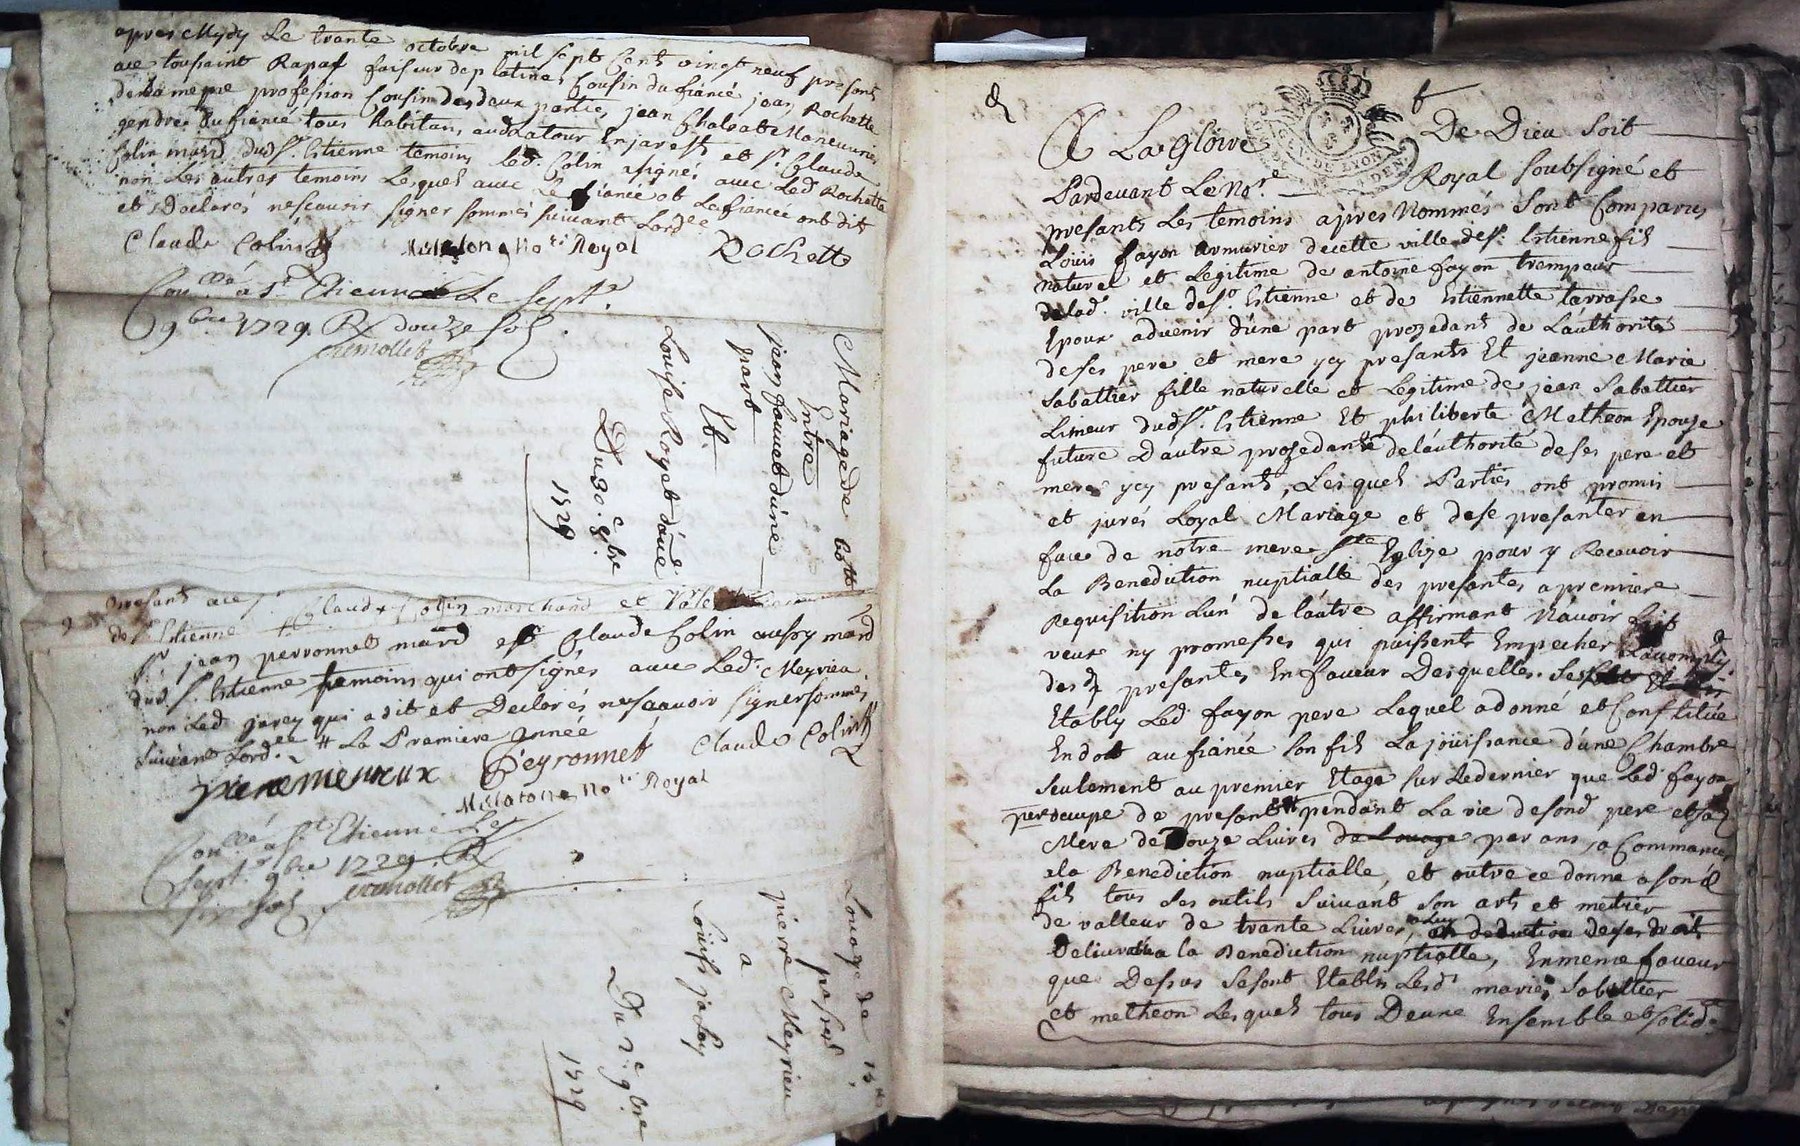 apres Mydy Le trante octobre mil sept Cent vingt neuf presents
ace toussaint Rapaf faiseur deplatines Cousin dufiancé jean Rochette
dela meme profession Cousin des deux parties, jean Chalvat
gendre du fiancé tous habitans audLatour Enjarest et Sr. Claude
Colin mard dudSt. Estienne temoins led. Colin asigné avec Led Rochette
non Les autres temoins Lesquels avec Le fiancé et Lafiancée ont dit
et declarés nescavoir signer sommés suivant Lordce
Claude Colin Nore Royal Rochette
Conllé à St. Etienne Le Sept.
9bre 1729. R douze sols
Mariage de 60 tt
Entre
jean fauvet dine
part
Et
Louise Royet dauc
Du 30e. 8bre
1729
presants ace Sr. Claude Colin marchand et
de St Estienne
Sr jean perronnet mard et Sr Claude Colin aussy mard
dud St. Estienne temoins qui ont signés avec Led. Meyrieu
non Led jarey qui a dit et Declarés nescavoir signer sommés
suivant Lordce # La Premiere année
pierre merieux Peyronnet Claude Colin
Nore Royal
Conllé à St. Etienne Le
Sept. 9bre 1729. R
six sols
Louage de 15 tt
pasres
pierre Meyrieu
a
Louis jarey
Du 2e 9bre
1729
A La Gloire De Dieu Soit
Pardevant Le Nore Royal soubsigné et
presants Les temoins apres Nommés Sont Comparus
Loüis fayon armurier decette ville deSt. Estienne fils
naturel et Legitime de antoine fayon trempeur
delad. ville deSt. Estienne et de Estiennette tarrasse
Epoux advenir d'une part prozedant de Láuthorité
deses pere et mere ycy presants Et jeanne Marie
Sabattier fille naturelle et Legitime de jean Sabattier
Limeur dudSt. Estienne Et philiberte Metheon Epouze
future Dautre prozedante deláuthorité deses pere et
mere ycy presants, Lesquels Parties ont promis
et jurés Loyal Mariage et dese presanter en
face de notre mere Ste Eglize pour y Recevoir
La Benediction nuptialle des presantes a premiere
Requisition Lun' de láutre affirmant Návoir fait
veux ny promesses qui puissent Empecher Lácomply
des presantes En faveur Desquelles
Etably Led fayon pere Lequel a donné et Constitüé
En dot au fiancé son fils La joüissance dúne Chambre
seulement au premier Etage sur Le dernier que Led fayon
pere ocupe de presant pendant La vie desond pere et sa
Mere de Douze Livres de Louage par ans, a Commancer
ala Benediction nuptialle, et outre ce donne a son d
fils tous ses outils suivant son art et metier
de valleur de trante Livres, a Luy en deduction de ses droits
Delivrables a la Benediction nuptialle, En meme faveur
que Dessus Se sont Etablis Lesd mariés Sabattier
et metheon Lesquels tous Deux Ensemble et solidt